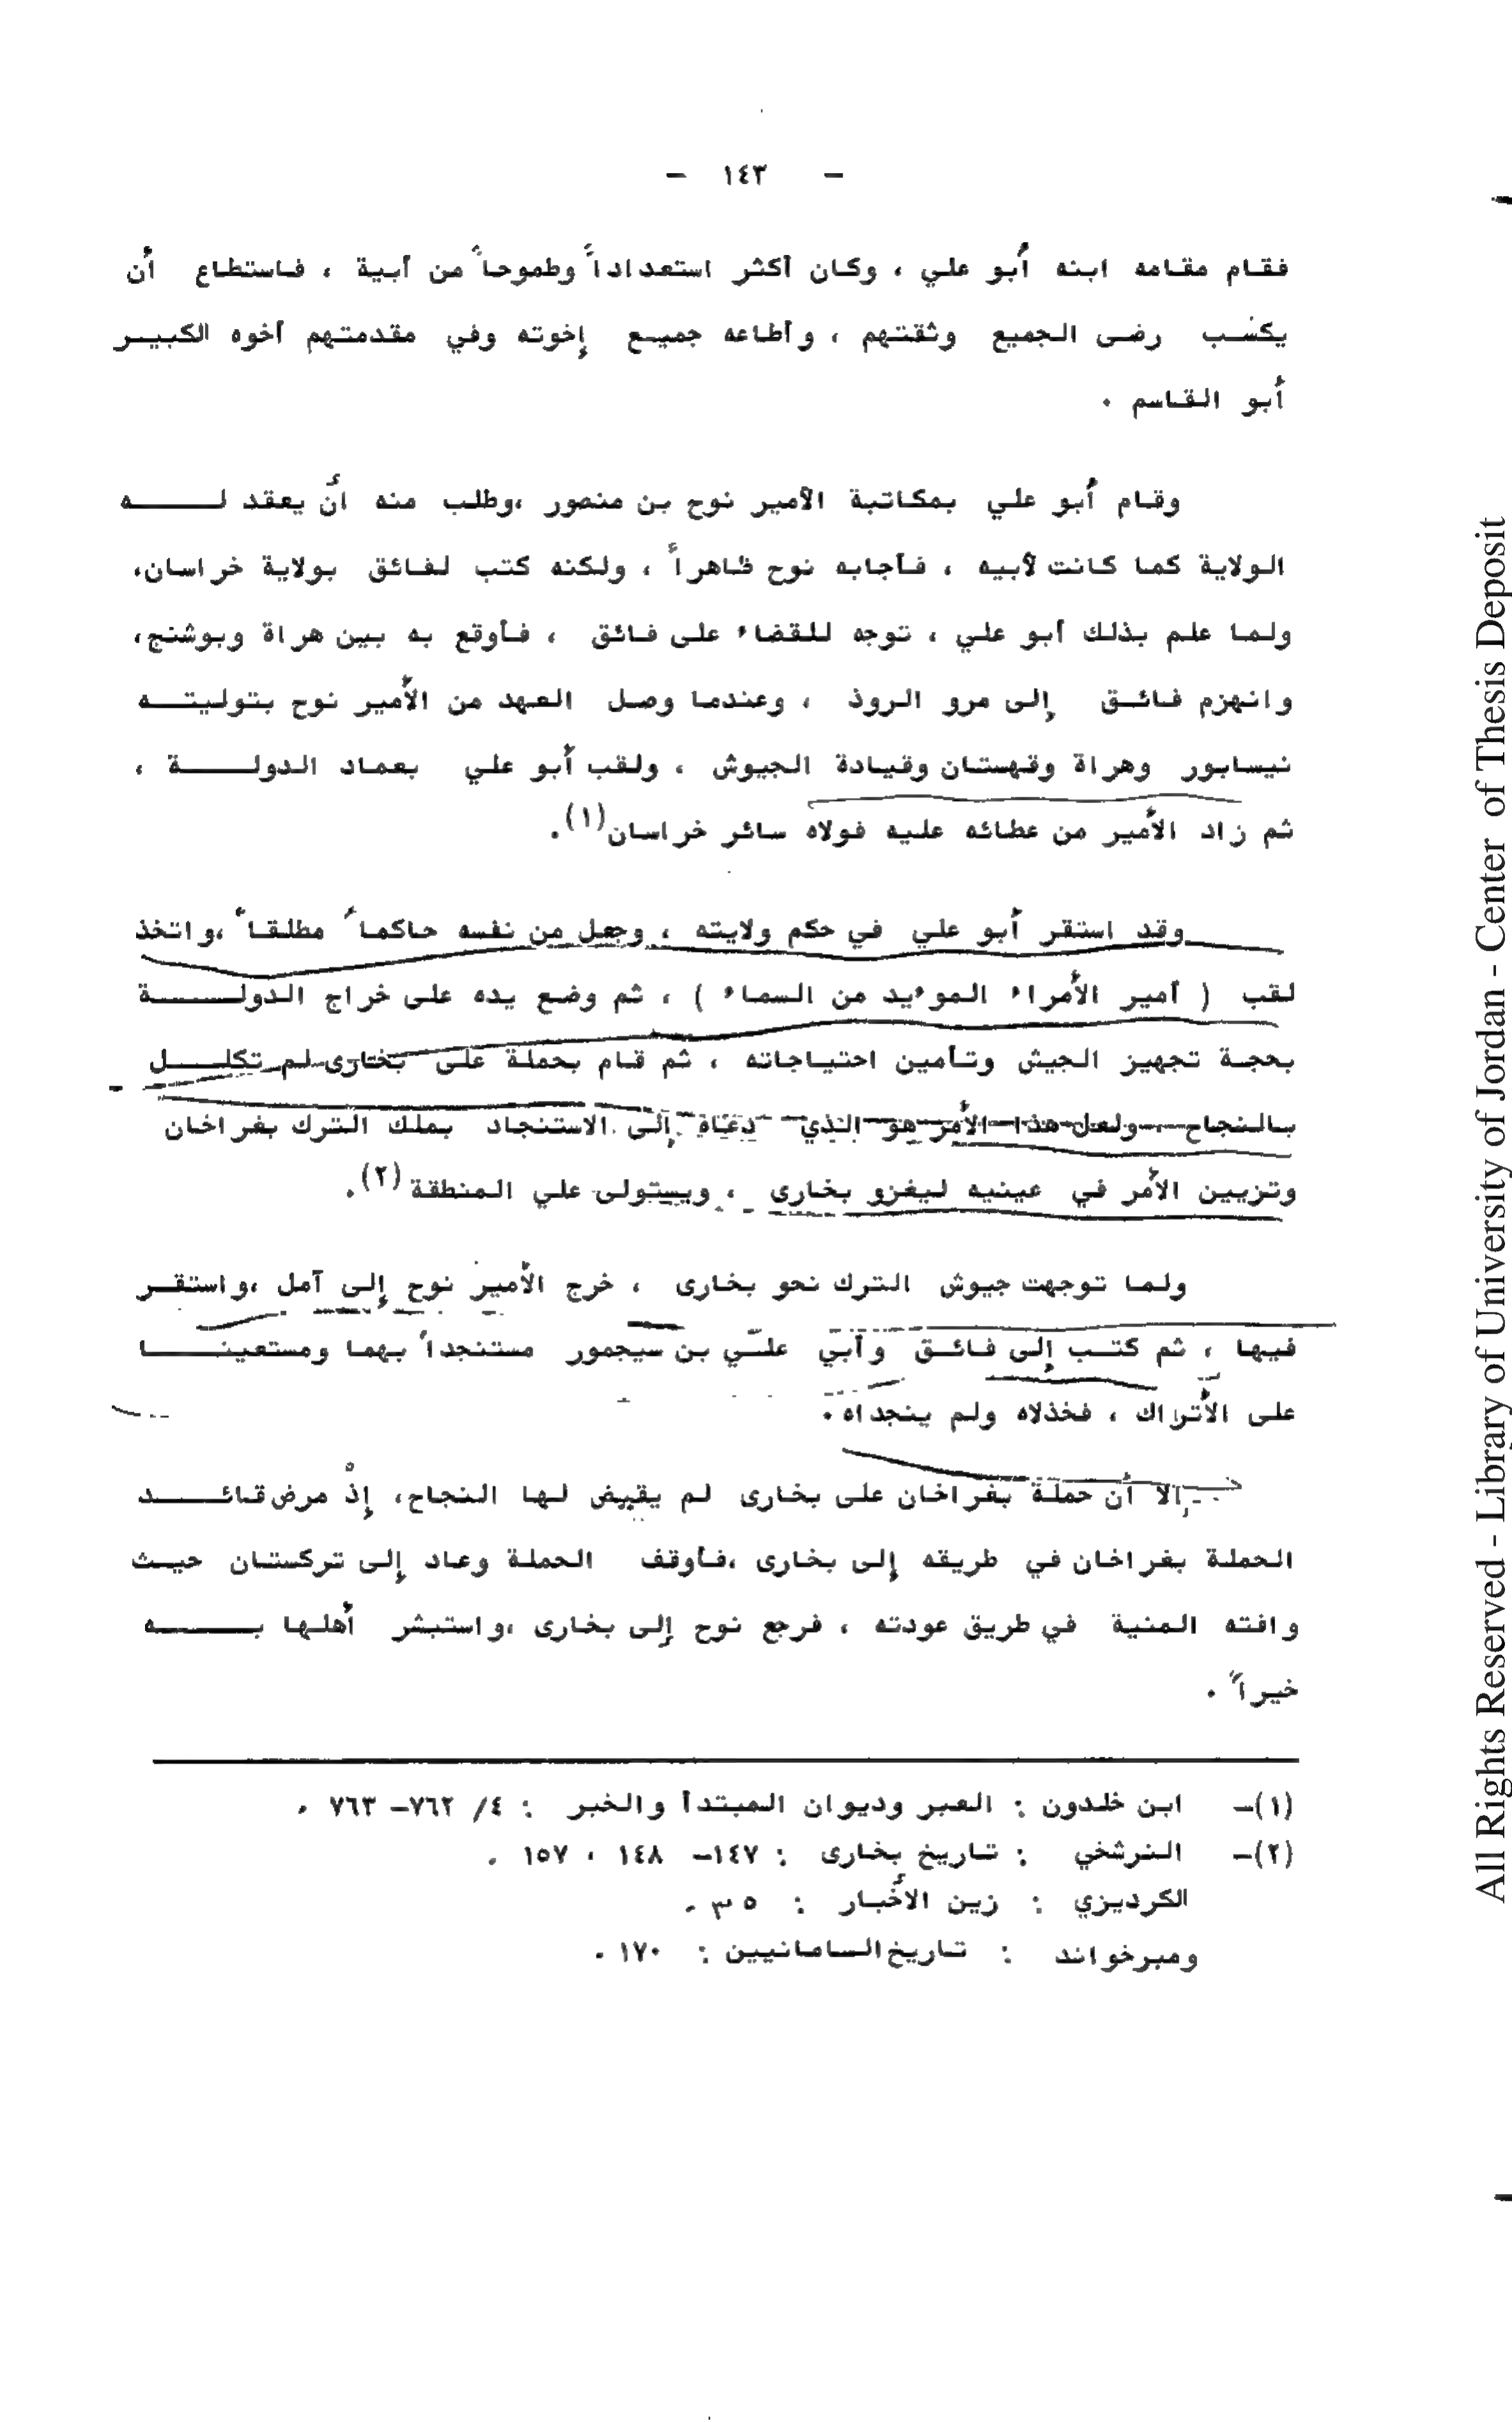 - ١٤٣ -
فقام مقامه ابنه أبو علي ، وكان أكثر استعداداً وطموحاً من أبية ، فاستطاع أن
يكسب رضى الجميع وثقتهم ، وأطاعه جميع إخوته وفي مقدمتهم أخوه الكبير
أبو القاسم .
وقام أبو علي بمكاتبة الأمير نوح بن منصور ،وطلب منه أن يعقد له
الولاية كما كانت لأبيه ، فأجابه نوح ظاهراً ، ولكنه كتب لفائق بولاية خراسان،
ولما علم بذلك أبو علي ، توجه للقضاء على فائق ، فأوقع به بين هراة وبوشنج،
وانهزم فائق إلى مرو الروذ ، وعندما وصل العهد من الأمير نوح بتوليته
نيسابور وهراة وقهستان وقيادة الجيوش ، ولقب أبو علي بعماد الدولة ،
ثم زاد الأمير من عطائه عليه فولاه سائر خراسان(١).
وقد استقر أبو علي في حكم ولايته ، وجعل من نفسه حاكماً مطلقاً ،واتخذ
لقب ( أمير الأمراء الموءيد من السماء ) ، ثم وضع يده على خراج الدولة
بحجة تجهيز الجيش وتأمين احتياجاته ، ثم قام بحملة على بخارى لم تكلل
بالنجاح ، ولعل هذا الأمر هو الذي دعاه إلى الاستنجاد بملك الترك بغراخان
وتزيين الأمر في عينيه ليغزو بخارى ، ويستولى علي المنطقة (٢).
ولما توجهت جيوش الترك نحو بخارى ، خرج الأمير نوح إلى آمل ،واستقر
فيها ، ثم كتب إلى فائق وأبي علي بن سيجمور مستنجداً بهما ومستعينا
على الأتراك ، فخذلاه ولم ينجداه .
إلا أن حملة بغراخان على بخارى لم يقيض لها النجاح، إذْ مرض قائد
الحملة بغراخان في طريقه إلى بخارى ،فأوقف الحملة وعاد إلى تركستان حيث
وافته المنية في طريق عودته ، فرجع نوح إلى بخارى ،واستبشر أهلها به
خيراً .
(١)- ابن خلدون : العبر وديوان المبتدأ والخبر : ٤/ ٧٦٢- ٧٦٣ .
(٢)- النرشخي : تاريخ بخارى : ١٤٧- ١٤٨ ، ١٥٧ .
الكرديزي : زين الأخبار :
وميرخواند : تاريخ السامانيين : ١٧٠ .
All Rights Reserved - Library of University of Jordan - Center of Thesis Deposit